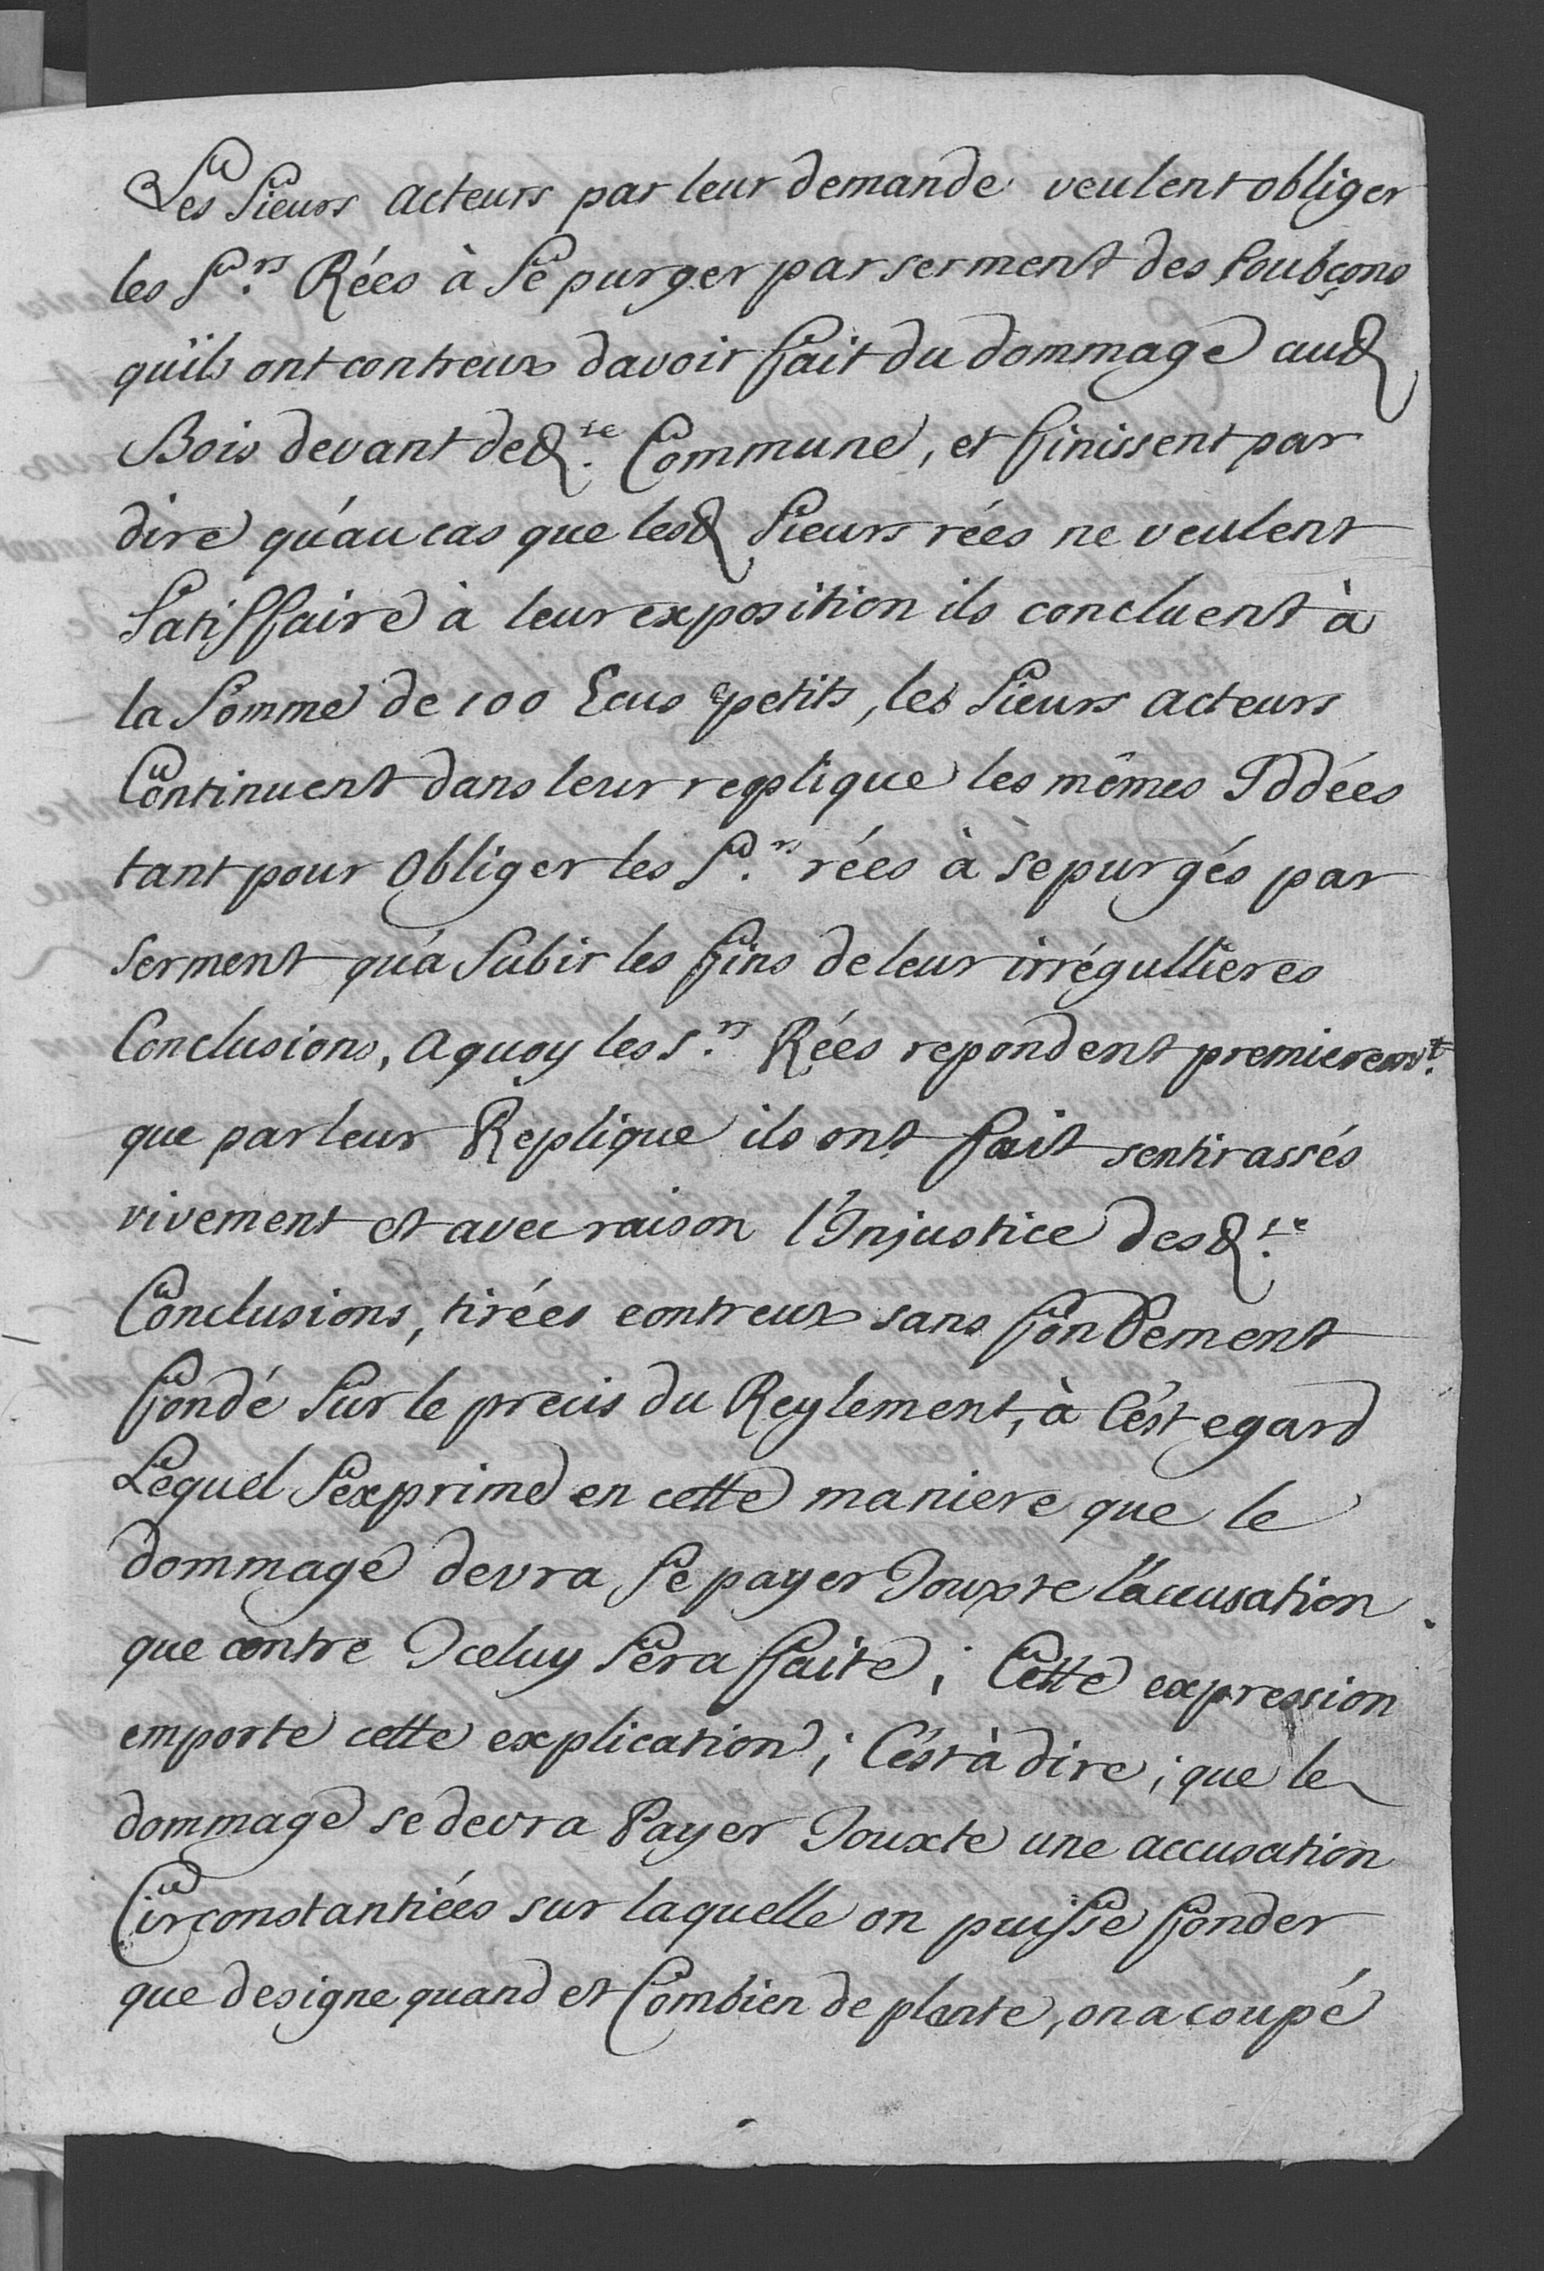 Les Sieurs acteurs par leur demande veulent obliger
les Srs. Rées à se purger par serment des soubçons
qu'ils ont contreux davoir fait du dommage aud
Bois devant dedte. Commune, et finissent par
dire qu'au cas que lesd Sieurs rées ne veulent
Satisffaire à leur exposition ils concluent à
la Somme de 100 Ecus petits, les Sieurs acteurs
Continuent dans leur replique les mêmes Iddées
tant pour Obliger les Srs. rées à se purgés par
serment qu'à Subir les fins de leur irrégullieres
Conclusions, a quoy les Srs. Rées repondent premieremt.
que par leur Replique ils ont fait sentir assés
vivement et avec raison l'Injustice desdte.
Conclusions, tirées contreux sans fondement
fondé Sur le precis du Reylement, à Cest egard
Lequel Sexprime en cette maniere que le
dommage devra Se payer Jouxte l'accusation
que contre Iceluy Sera ffaite; Cette expression
emporte cette explication; C'est à dire; que le
dommage se devra Payer Jouxte une accusation
Circonstantiées sur laquelle on puisse fonder
que designe quand et Combien de plante, on a coupé